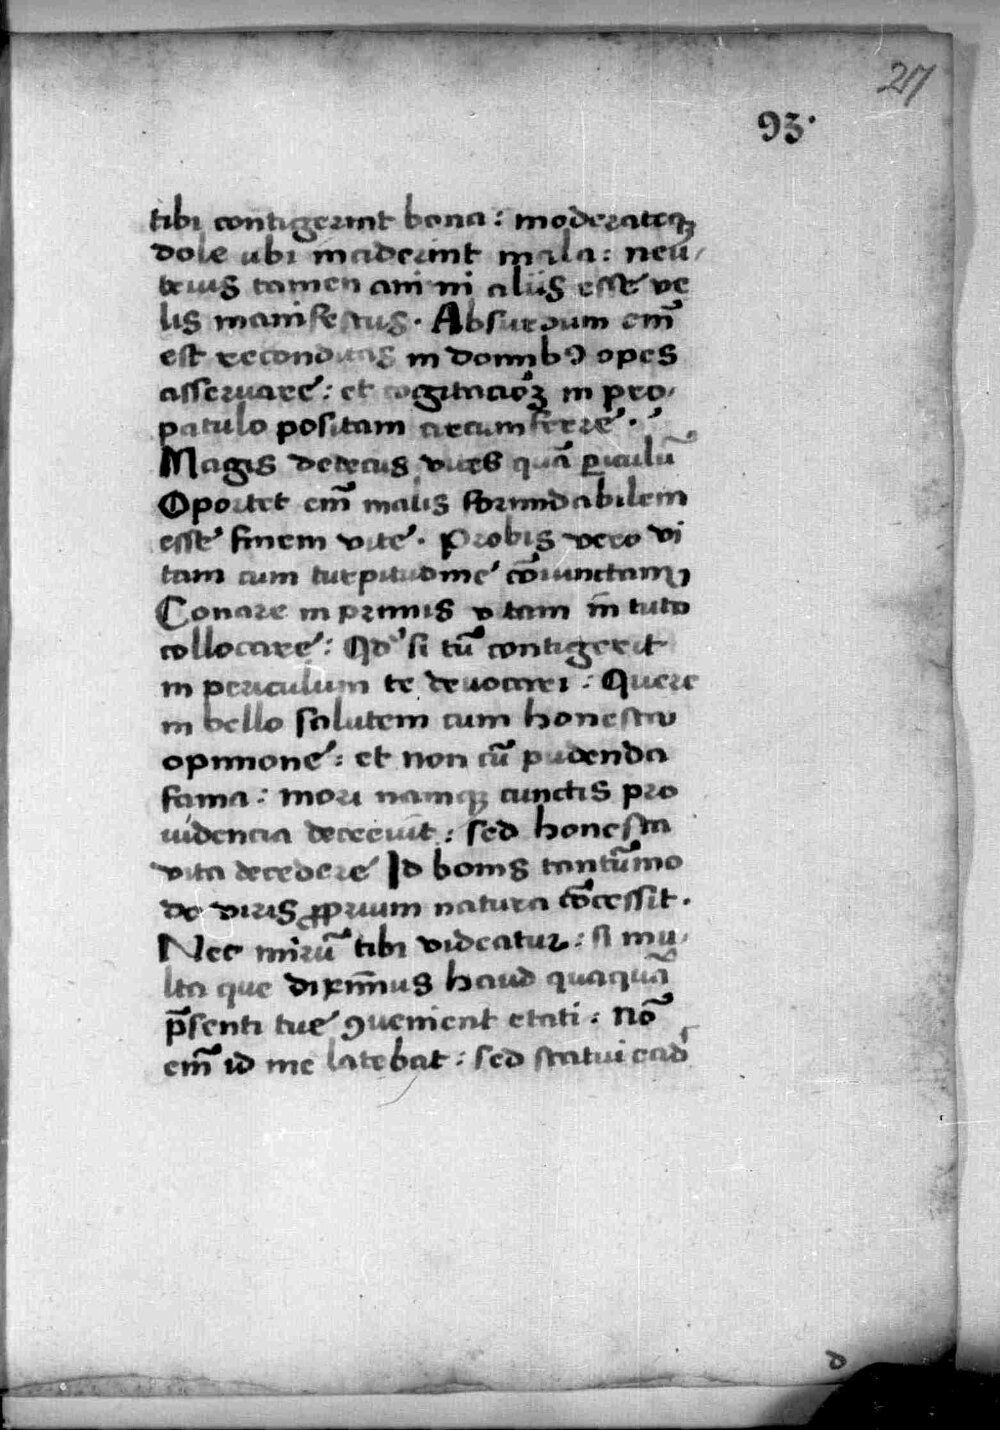 27
93.
tibi contigerint bona: moderateqꝫ
dole ubi inciderint mala: neu/
trius tamen animi aliis esse ve
lis manifestus. Absurdum em̄
est reconditas in domibꝰ opes
asseruare: et cogitacioꝫ in pro/
patulo positam circumferre.
Magis detectus vites quā periculū
Oportet em̄ malis formidabilem
esse finem vite. Probis vero vi
tam cum turpitudine cōiunctam
Conare in primis vitam in tuto
collocare: Qd' si tū contigerit
in periculum te deuocari: Quere
in bello salutem cum honesta
opinione: et non cū pudenda
fama: mori namqꝫ cunctis pro
uidencia decreuit: sed honesta
vita decedere Id bonis tantūmo
do viris ꝓprium natura cōcessit.
Nec mirū tibi videatur: si mu/
lta que diximus haud quaquā
p̄senti tue ꝯuenient etati: Nō
em̄ id me latebat: sed statui ead'
d